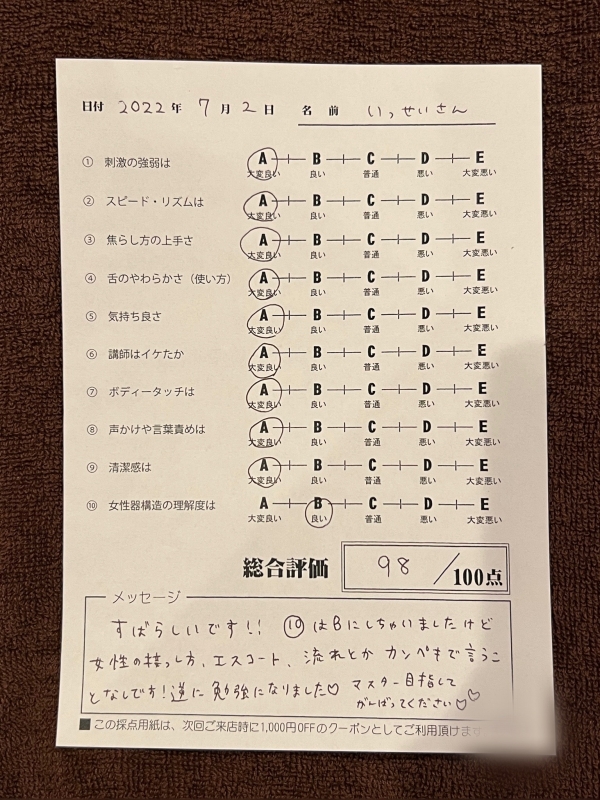 日付 2022年 7月 2日 名前 いっせいさん
① 刺激の強弱は A B C D E
大変良い 良い 普通 悪い 大変悪い
② スピード・リズムは A B C D E
大変良い 良い 普通 悪い 大変悪い
③ 焦らし方の上手さ A B C D E
大変良い 良い 普通 悪い 大変悪い
④ 舌のやわらかさ（使い方） A B C D E
大変良い 良い 普通 悪い 大変悪い
⑤ 気持ち良さ A B C D E
大変良い 良い 普通 悪い 大変悪い
⑥ 講師はイケたか A B C D E
大変良い 良い 普通 悪い 大変悪い
⑦ ボディータッチは A B C D E
大変良い 良い 普通 悪い 大変悪い
⑧ 声かけや言葉責めは A B C D E
大変良い 良い 普通 悪い 大変悪い
⑨ 清潔感は A B C D E
大変良い 良い 普通 悪い 大変悪い
⑩ 女性器構造の理解度は A B C D E
大変良い 良い 普通 悪い 大変悪い
総合評価 98/100点
メッセージ
すばらしいです!! ⑩はBにしちゃいましたけど
女性の接し方、エスコート、流れとかカンペキで言うこ
となしです!逆に勉強になりました♡ マスター目指して
がんばってください♡♡
■この採点用紙は、次回ご来店時に1,000円OFFのクーポンとしてご利用頂けます